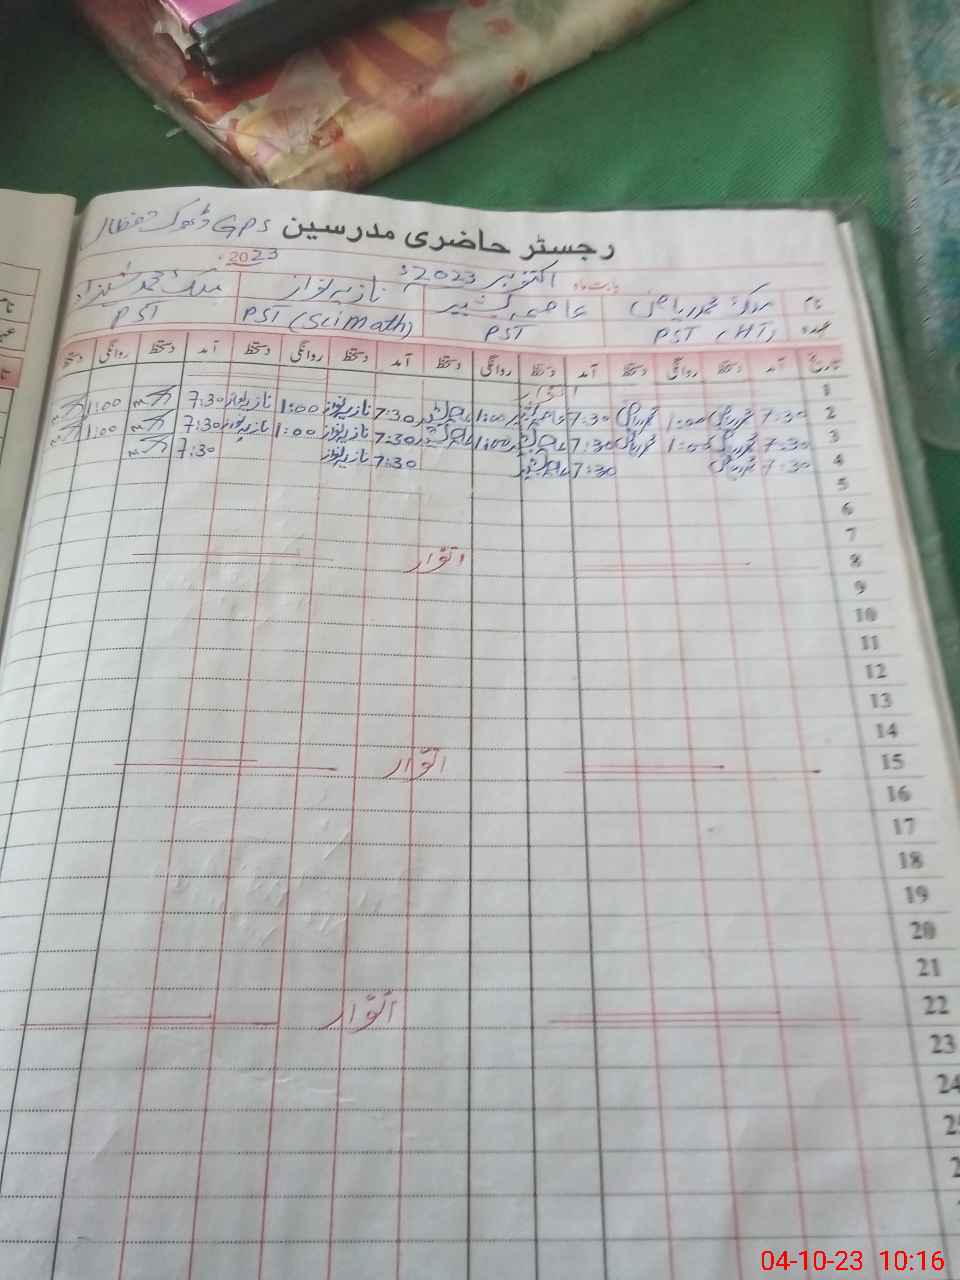 رجسٹر حاضری مدرسین GPS ڈھوک
بابت ماہ اکتوبر 2023ء 2023
نام محمد ریاض عاصمہ نازیہ نواز ملک محمد شہزاد
عہدہ PST (HT) PST PST (Sci Math) PST
تاریخ آمد دستخط روانگی دستخط آمد دستخط روانگی دستخط آمد دستخط روانگی دستخط آمد دستخط روانگی دستخط
1 اتوار
2 7:30 محمد ریاض 1:00 محمد ریاض 7:30 1:00 7:30 نازیہ نواز 1:00 نازیہ نواز 7:30 1:00
3 7:30 محمد ریاض 1:00 محمد ریاض 7:30 1:00 7:30 نازیہ نواز 1:00 نازیہ نواز 7:30 1:00
4 7:30 محمد ریاض 7:30 7:30 نازیہ نواز 7:30
5
6
7
8 اتوار
9
10
11
12
13
14
15 اتوار
16
17
18
19
20
21
22 اتوار
23
24
04-10-23 10:16